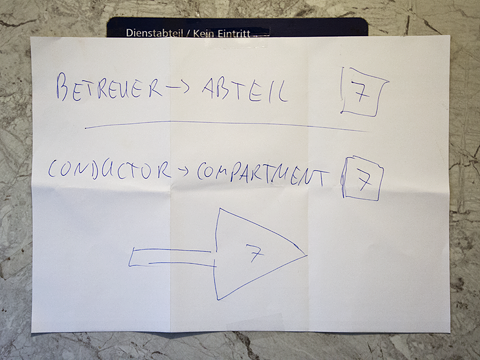 Dienstabteil / Kein Eintritt
BETREUER → ABTEIL 7
CONDUCTOR → COMPARTMENT 7
7